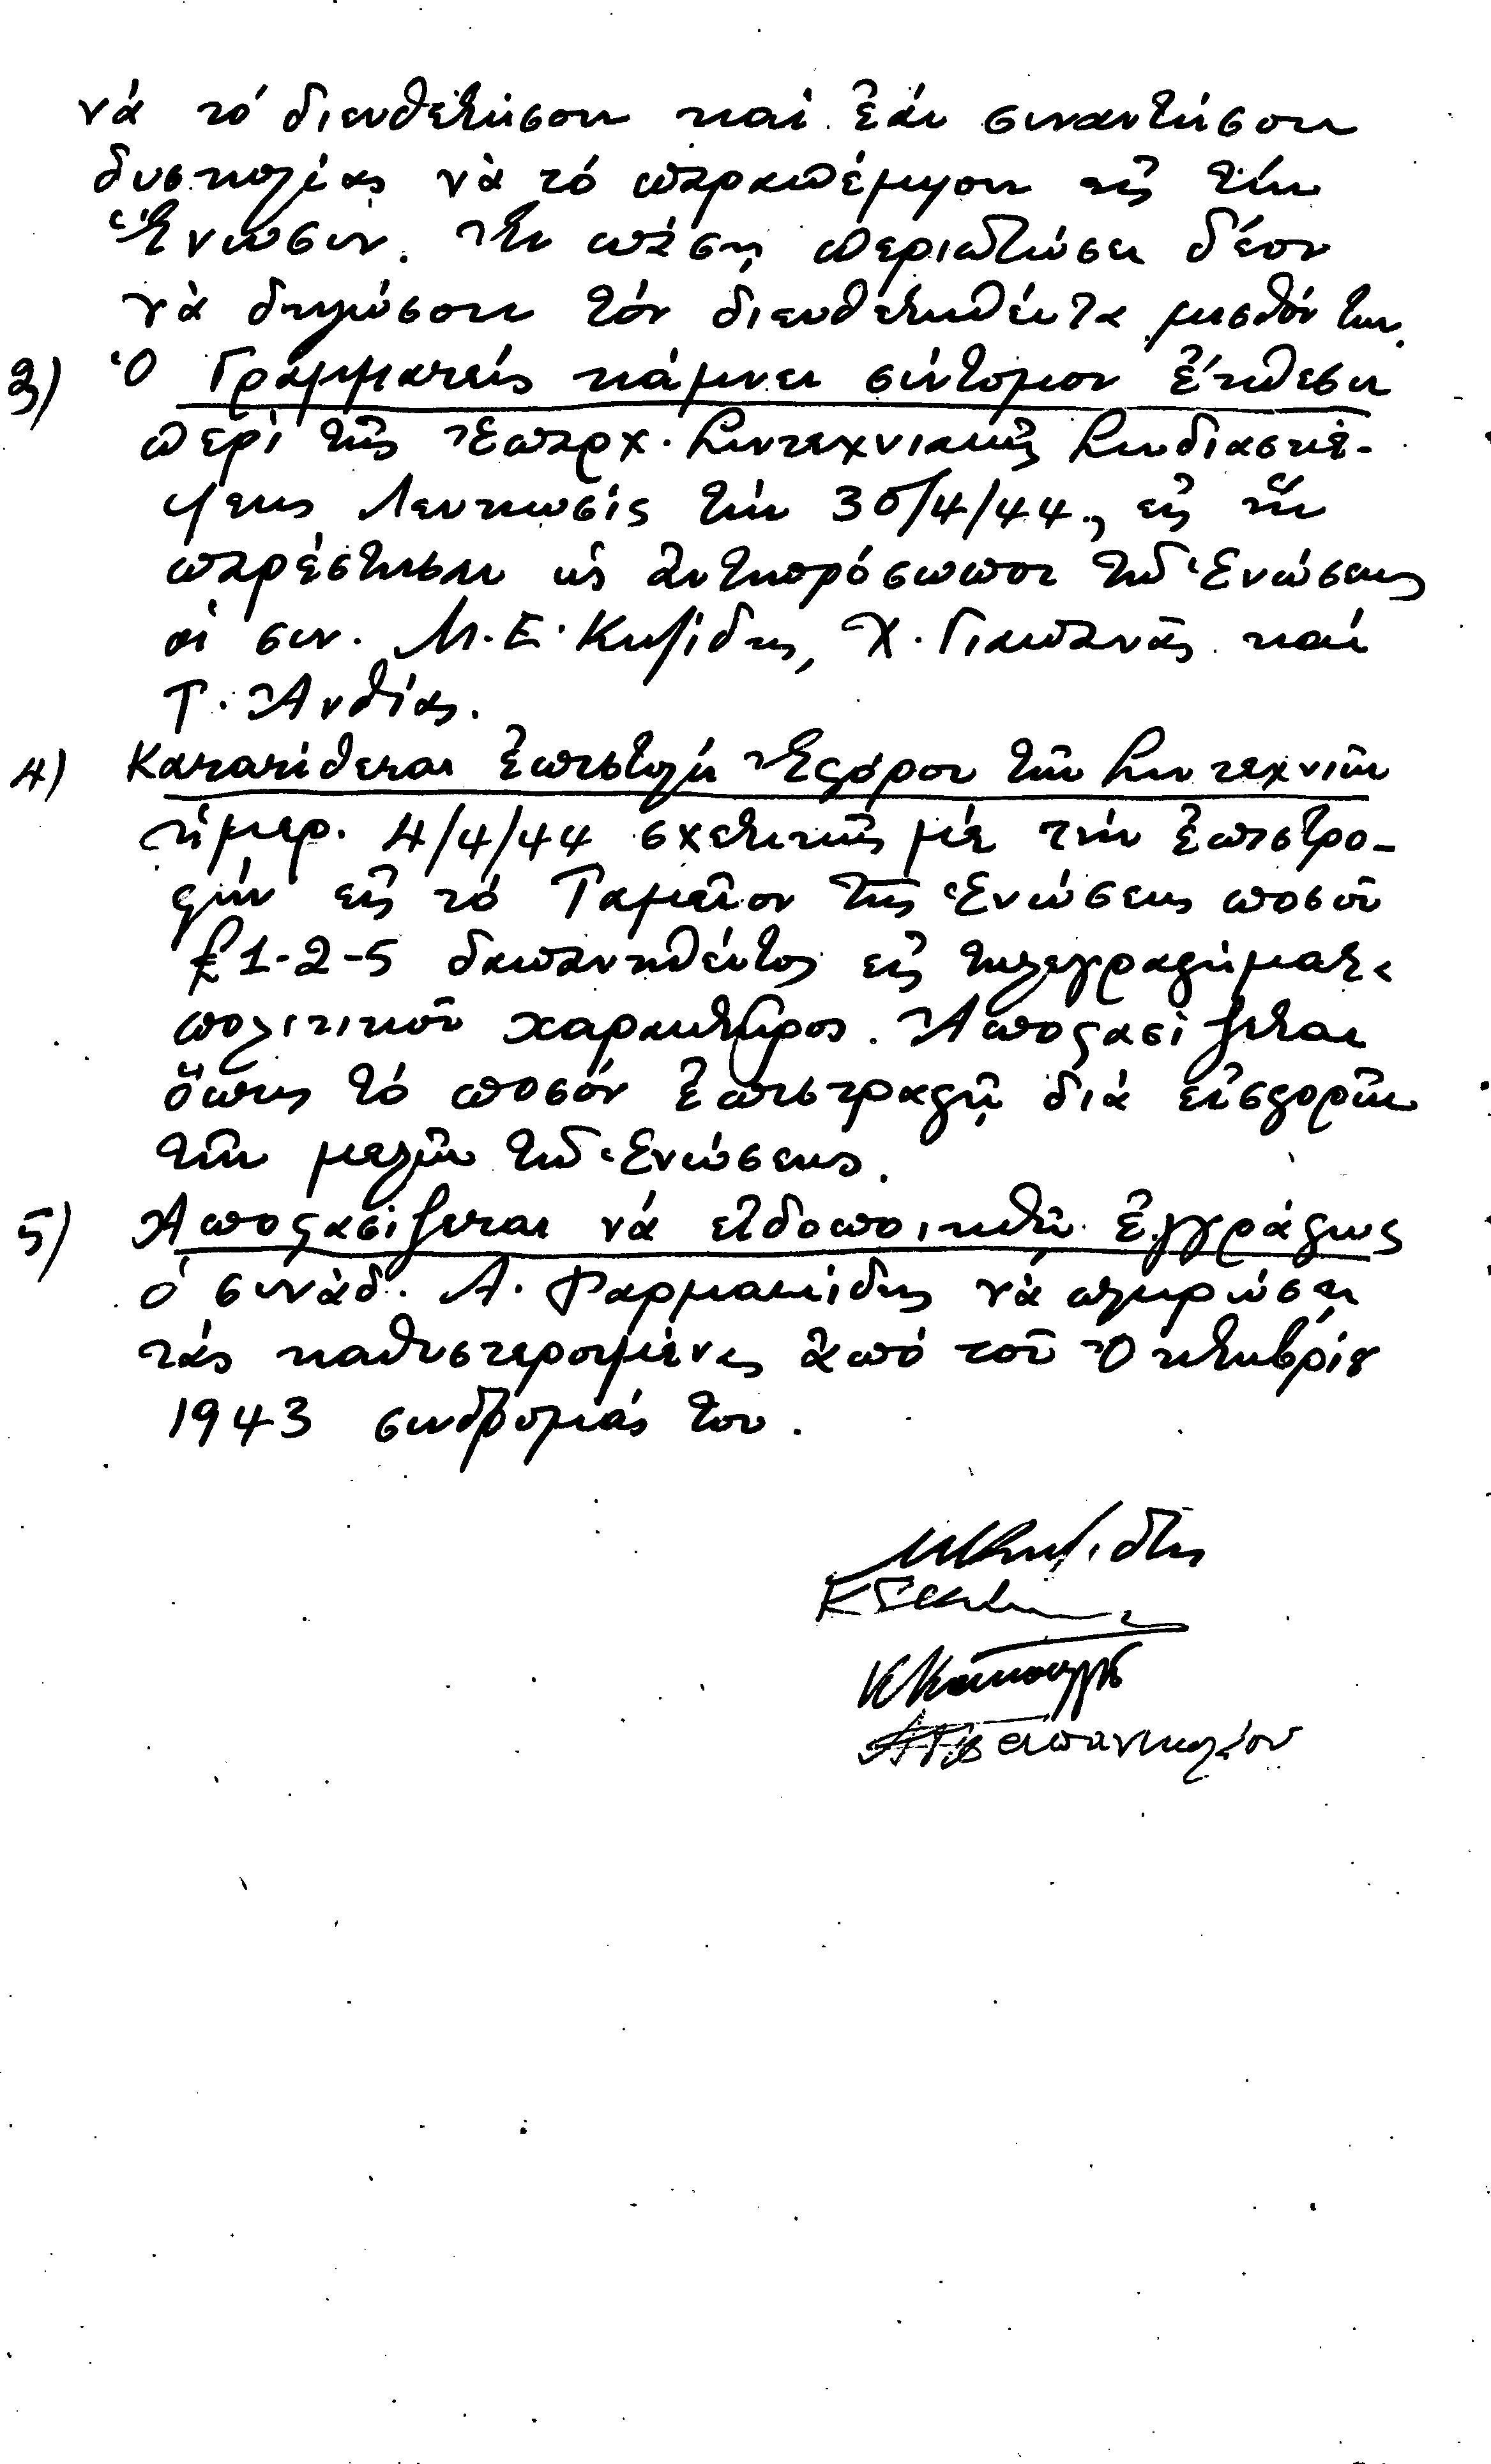 νά τό διευθετήσουν καί ἐάν συναντήσουν
δυσκολίας νὰ τό παραπέμψουν εἰς τήν
Ἕνωσιν. Ἐν πάσῃ περιπτώσει δέον
νὰ δηλώσουν τόν διευθετηθέντα μισθόν των.
3) Ὁ Γραμματεύς κάμνει σύντομον ἔκθεσιν
περί τῆς Ἐπαρχ. Συντεχνιακῆς Συνδιασκέ-
ψεως Λευκωσίς τήν 30/4/44, εἰς ἥν
παρέστησαν ὡς ἀντιπρόσωποι τῆς Ἑνώσεως
οἱ συν. Μ. Ε. Κυζίδης, Χ. Γιαπανᾶς καί
Τ. Ἀνθίας.
4) Κατατίθεται ἐπιστολή Ἐφόρου τῶν Συντεχνιῶν
ἡμερ. 4/4/44 σχετικῆς μέ τήν ἐπιστρο-
φήν εἰς τό Ταμεῖον τῆς Ἑνώσεως ποσοῦ
£1-2-5 δαπανηθέντος εἰς τηλεγραφήματα
πολιτικοῦ χαρακτῆρος. Ἀποφασίζεται
ὅπως τό ποσόν ἐπιστραφῇ διά εἰσφορῶν
τῶν μελῶν τῆς Ἑνώσεως.
5) Ἀποφασίζεται νά εἰδοποιηθῇ ἐγγράφως
ὁ συνάδ. Α. Φαρμακίδης νὰ πληρώσῃ
τάς καθυστερουμένας ἀπό τοῦ Ὀκτωβρίου
1943 συνδρομάς του.
ΜΚυζίδης